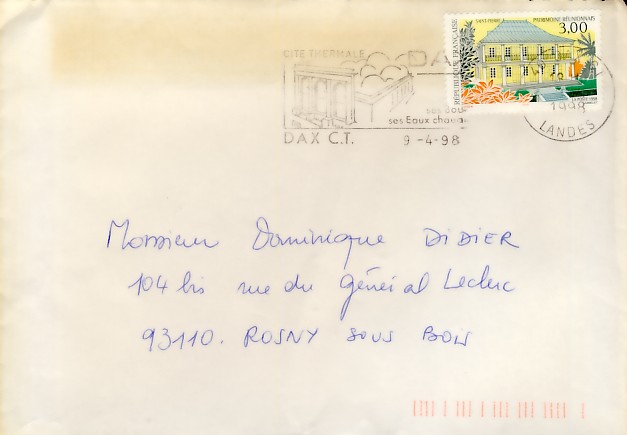 SAINT-PIERRE PATRIMOINE RÉUNIONNAIS
3.00
RÉPUBLIQUE FRANÇAISE
LA POSTE 1998
CITE THERMALE
DAX
ses Eaux chau
DAX C.T. 9 -4-98
1998
LANDES
Monsieur Dominique DIDIER
104 bis rue du Général Leclerc
93110. ROSNY SOUS BOIS